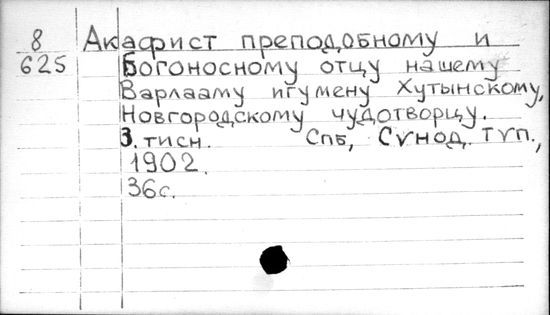 8 Акафист преподобному и
625 Богоносному отцу нашему
Варлааму игумену Хутынскому,
Новгородскому чудотворцу.
3. тисн. Спб, Сѵнод. тѵп.,
1902.
36с.